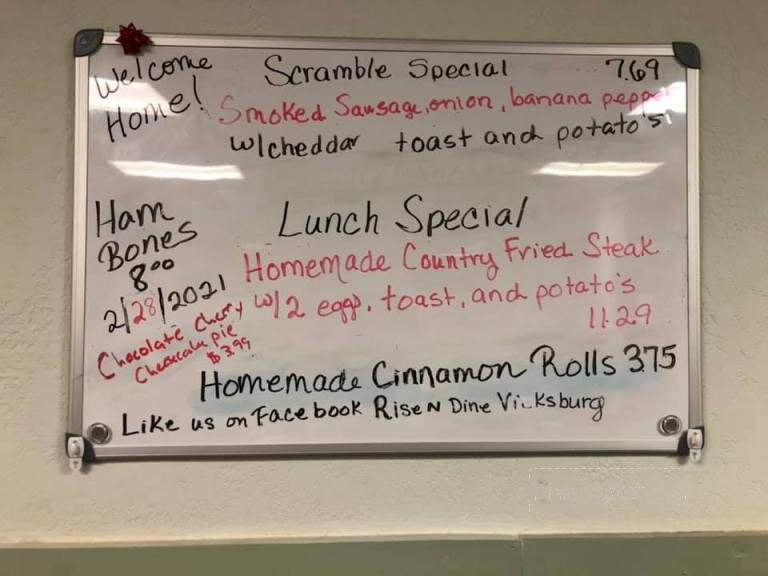 Welcome
Home!
Scramble Special 7.69
Smoked Sausage, onion, banana pepper
w/cheddar toast and potato's
Ham
Bones
8.00
2/28/2021
Chocolate Cherry
Cheesecake pie
$3.99
Lunch Special
Homemade Country Fried Steak
w/2 eggs, toast, and potato's
11.29
Homemade Cinnamon Rolls 3.75
Like us on Facebook Rise N Dine Vicksburg